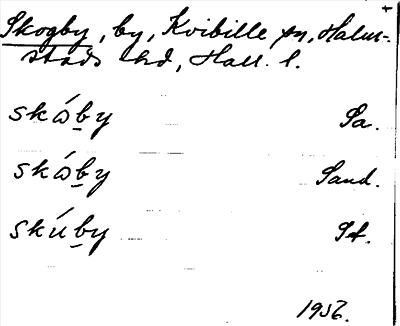 Skogby, by, Kvibille sn, Halm-
stads hd, Hall. l.
skǻby Sa.
skǻby Sand.
skúby Sf.
1956.